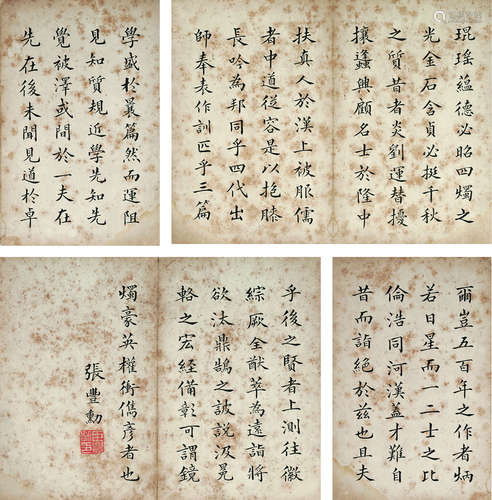 琨瑤蘊德必昭四燭之
光金石含貞必挺千秋
之質昔者炎劉運替擾
攘蠭興顧名士於隆中
扶真人於漢上被服儒
者中道從容是以抱膝
長吟為邦同乎四代出
師奉表作訓匹乎三篇
學盛於曩篇然而運阻
見知質規近學先知先
覺被澤或間於一夫在
先在後未聞見道於卓
爾豈五百年之作者炳
若日星而一二士之比
倫浩同河漢蓋才難自
昔而詣絕於茲也且夫
乎後之賢者上測往徽
綜厥全猷萃為遠詣將
欲汰鼎鵠之詖說汲晃
輅之宏經備彰可謂鏡
燭豪英權衡儁彥者也
張豐勳